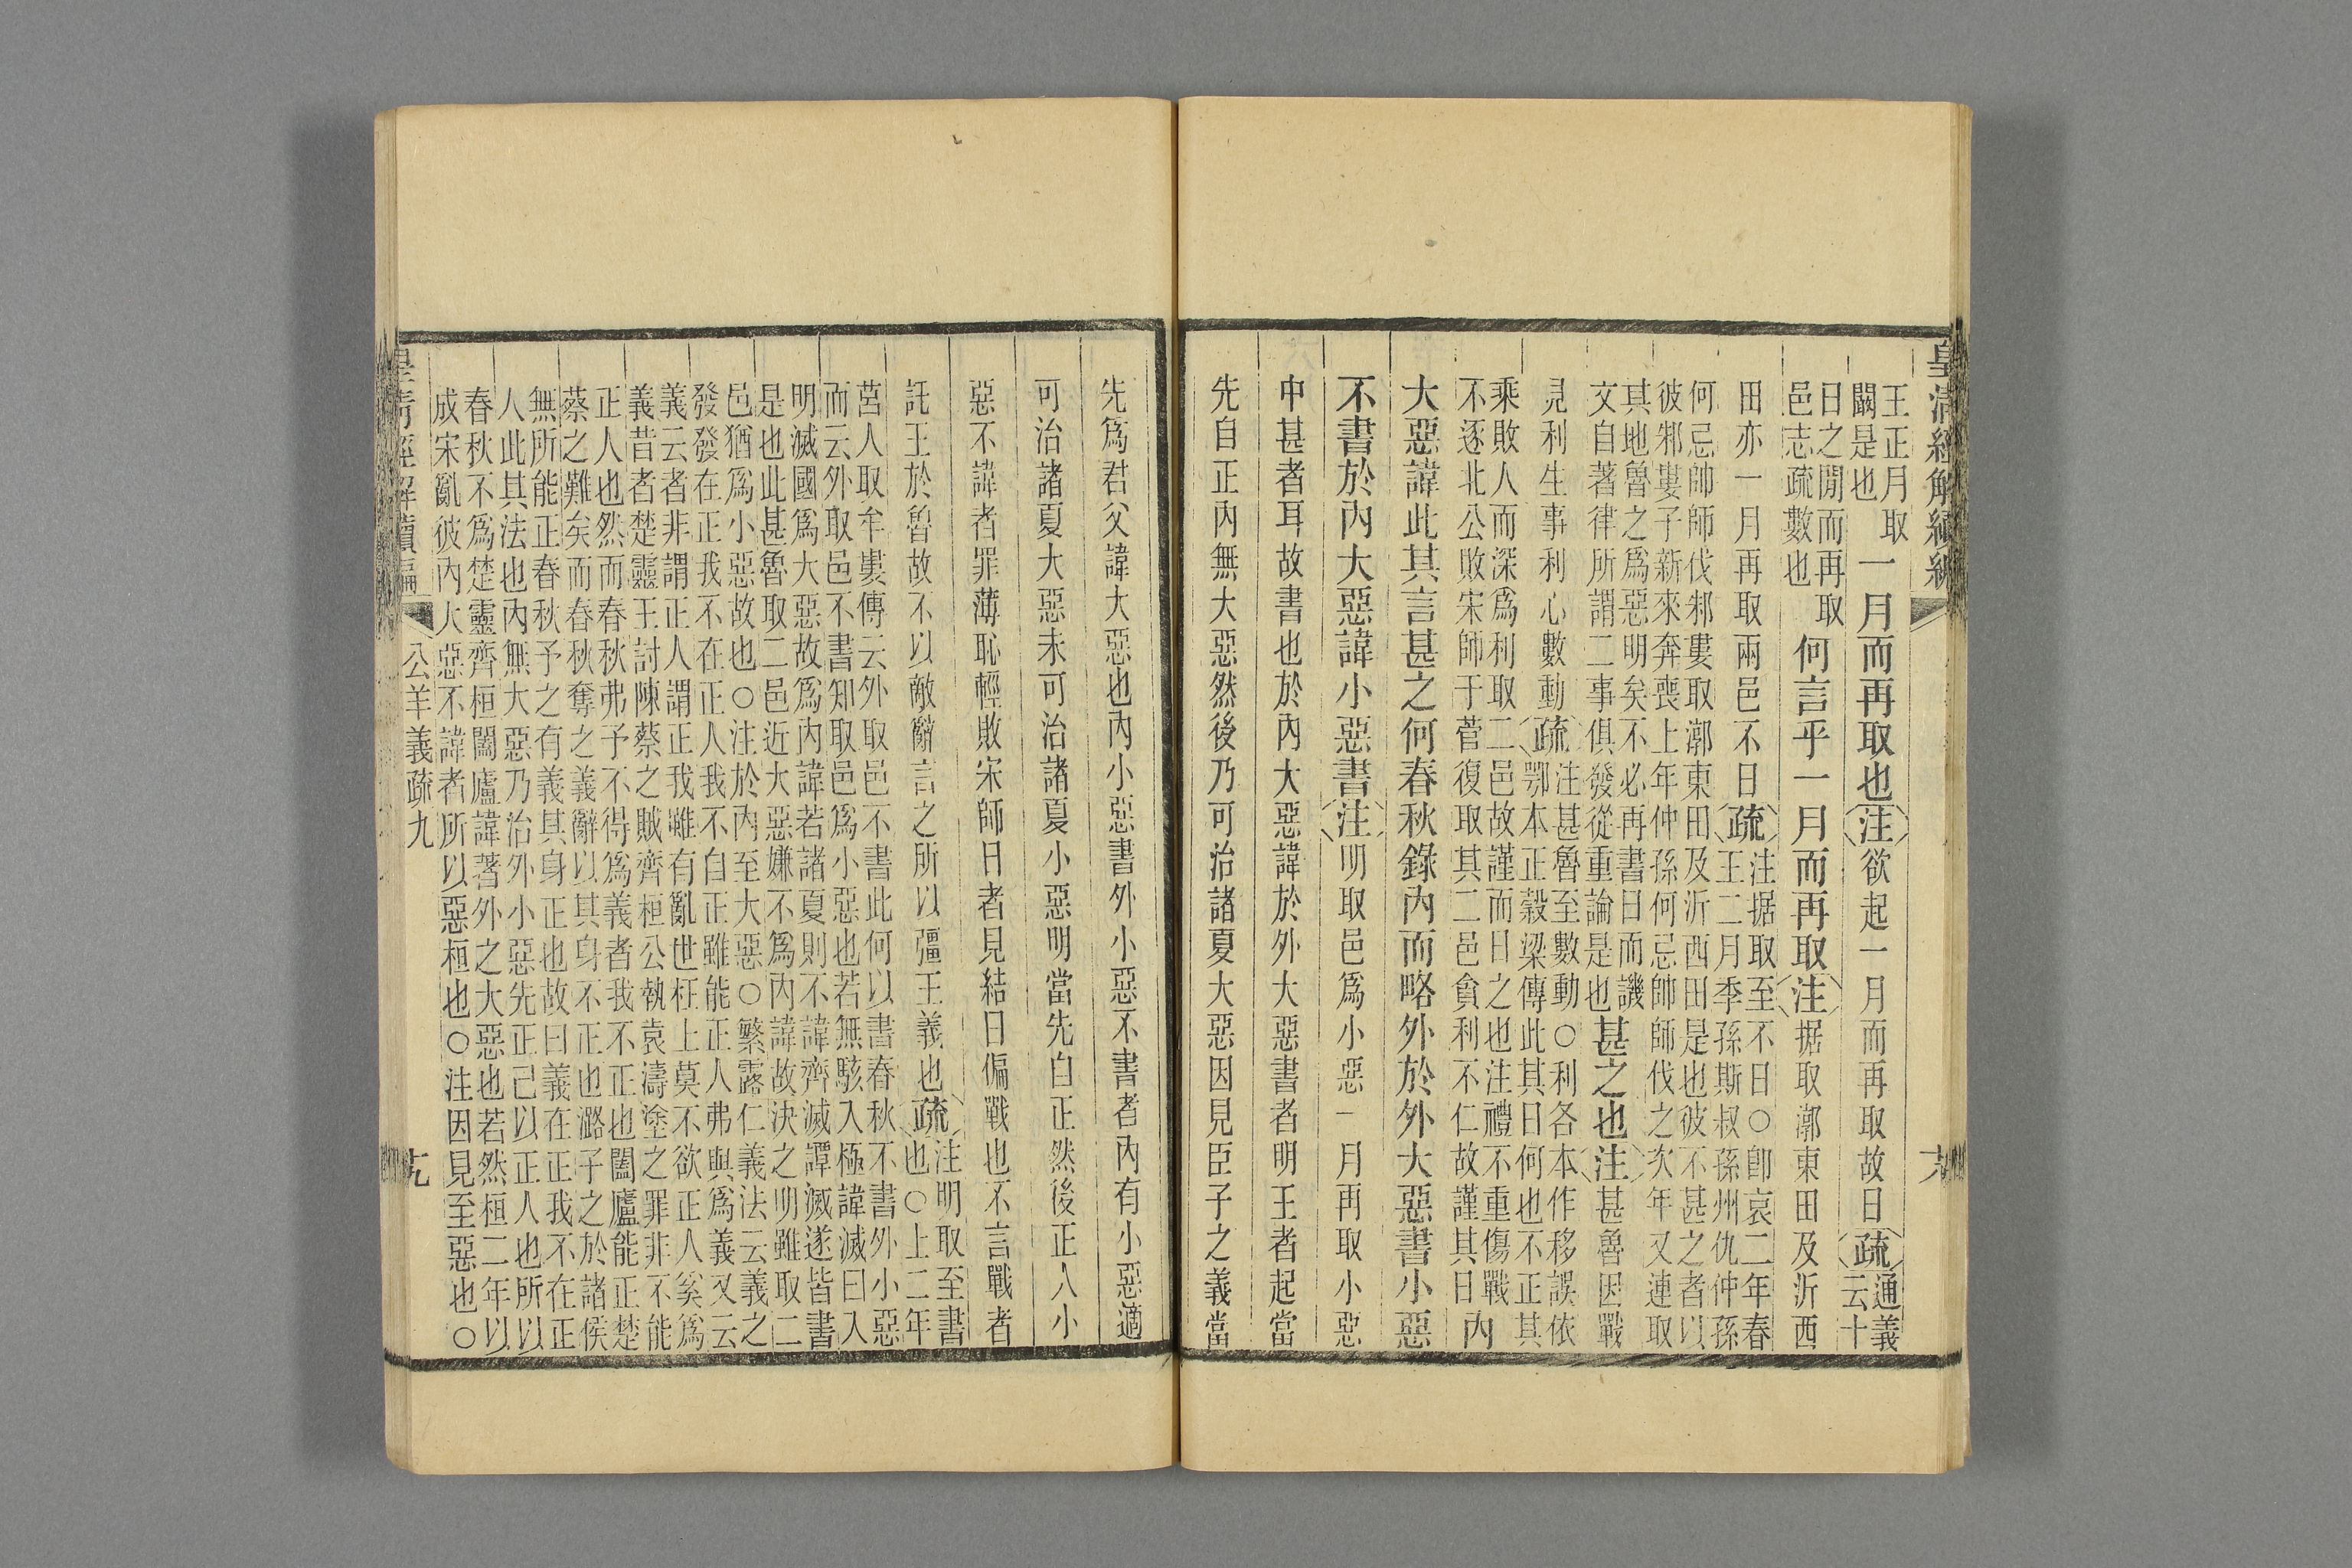 皇清經解續編
王正月取闞是也一月而再取也注欲起一月而再取故日疏通義云十
日之閒而再取邑志疏數也何言乎一月而再取注据取漷東田及沂西
田亦一月再取兩邑不日疏注据取至不日○卽哀二年春王二月季孫斯叔孫州仇仲孫
何忌帥師伐邾婁取漷東田及沂西田是也彼不甚之者以
彼邾婁子新來奔喪上年仲孫何忌帥師伐之次年又連取
其地魯之爲惡明矣不必再書日而譏文自著律所謂二事俱發從重論是也甚之也注甚魯因戰
見利生事利心數動疏注甚魯至數動○利各本作移誤依鄂本正穀梁傳此其日何也不正其
乘敗人而深爲利取二邑故謹而日之也注禮不重傷戰
不逐北公敗宋師于菅復取其二邑貪利不仁故謹其日內
大惡諱此其言甚之何春秋錄內而略外於外大惡書小惡
不書於內大惡諱小惡書注明取邑爲小惡一月再取小惡
中甚者耳故書也於內大惡諱於外大惡書者明王者起當
先自正內無大惡然後乃可治諸夏大惡因見臣子之義當
先爲君父諱大惡也內小惡書外小惡不書者內有小惡適
可治諸夏大惡未可治諸夏小惡明當先自正然後正人小
惡不諱者罪薄恥輕敗宋師日者見結日偏戰也不言戰者
託王於魯故不以敵辭言之所以彊王義也疏注明取至書也○上二年
莒人取牟婁傳云外取邑不書此何以書春秋不書外小惡
而云外取邑不書知取邑爲小惡也若無駭入極諱滅曰入
明滅國爲大惡故爲內諱若諸夏則不諱齊滅譚滅遂皆書
是也此甚魯取二邑近大惡嫌不爲內諱故決之明雖取二
邑猶爲小惡故也○注於內至大惡○繁露仁義法云義之
發發在正我不在正人我不自正雖能正人弗與爲義又云
義云者非謂正人謂正我雖有亂世枉上莫不欲正人奚爲
義昔者楚靈王討陳蔡之賊齊桓公執袁濤塗之罪非不能
正人也然而春秋弗予不得爲義者我不正也闔廬能正楚
蔡之難矣而春秋奪之義辭以其身不正也潞子之於諸侯
無所能正春秋予之有義其身正也故曰義在正我不在正
人此其法也內無大惡乃治外小惡先正己以正人也所以
春秋不爲楚靈齊桓闔廬諱著外之大惡也若然桓二年以
成宋亂彼內大惡不諱者所以惡桓也○注因見至惡也○
皇清經解續編
公羊義疏九